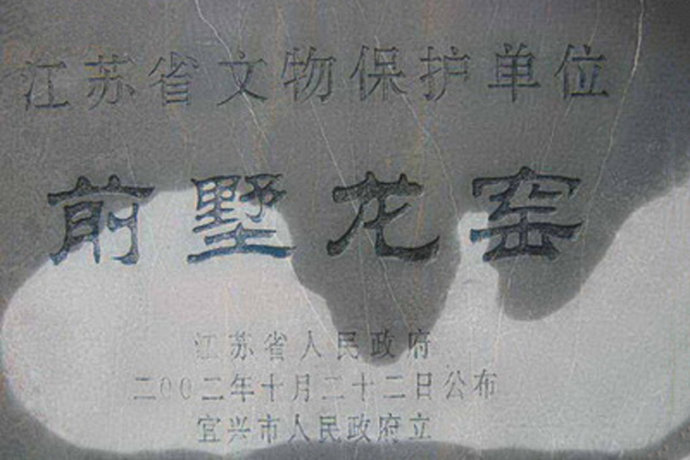 江苏省文物保护单位
前墅龙窑
江苏省人民政府
二00二年十月二十二日公布
宜兴市人民政府立